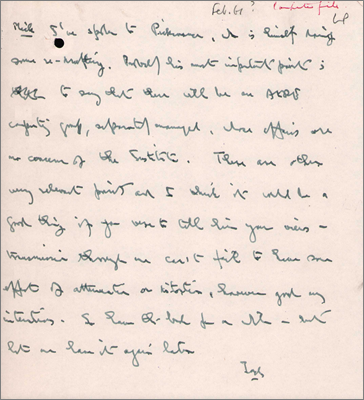 Feb. 61? Computer file
Mick I've spoken to Pickavance, who is himself doing
some re-drafting. Probably his most important point is
to say that there will be an Atlas
computing group, separately managed, whose affairs are
no concern of the Institute. There are other
very relevant points and I think it would be a
good thing if you were to tell him your views -
transmission through me can't fail to have some
effect of attenuation or distortion, however good my
intentions. So have this back for a while - but
let me have it again later